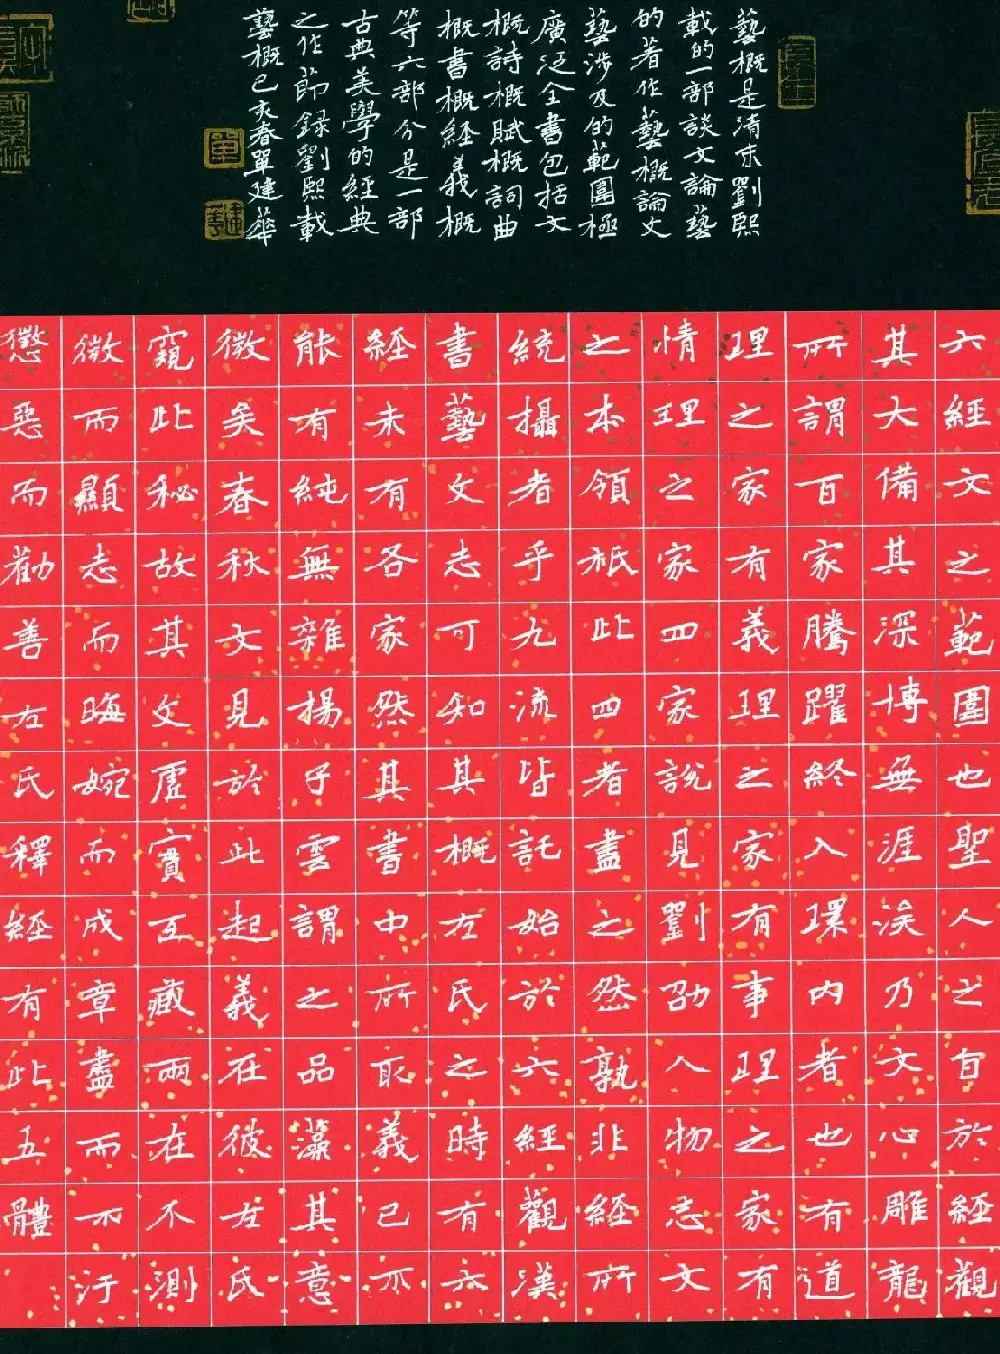 藝概是清末劉熙
載的一部談文論藝
的著作藝概論文
藝涉及的範圍極
廣泛全書包括文
概詩概賦概詞曲
概書概經義概
等六部分是一部
古典美學的經典
之作節録劉熙載
藝概己亥春單建華
六經文之範圍也聖人之旨於經觀
其大備其深博無涯涘乃文心雕龍
所謂百家騰躍終入環内者也有道
理之家有義理之家有事理之家有
情理之家四家說見劉劭人物志文
之本領祇此四者盡之然孰非經所
統攝者乎九流皆託始於六經觀漢
書藝文志可知其概左氏之時有六
經未有各家然其書中所取義已不
能有純無雜揚子雲謂之品藻其意
微矣春秋文見於此起義在彼左氏
窺此秘故其文虛實互藏兩在不測
微而顯志而晦婉而成章盡而不汙
懲惡而勸善左氏釋經有此五體